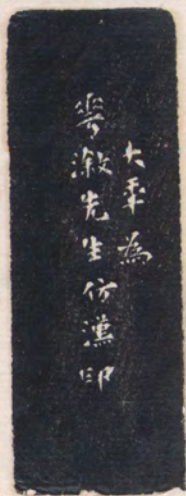 大年為
先生仿漢印